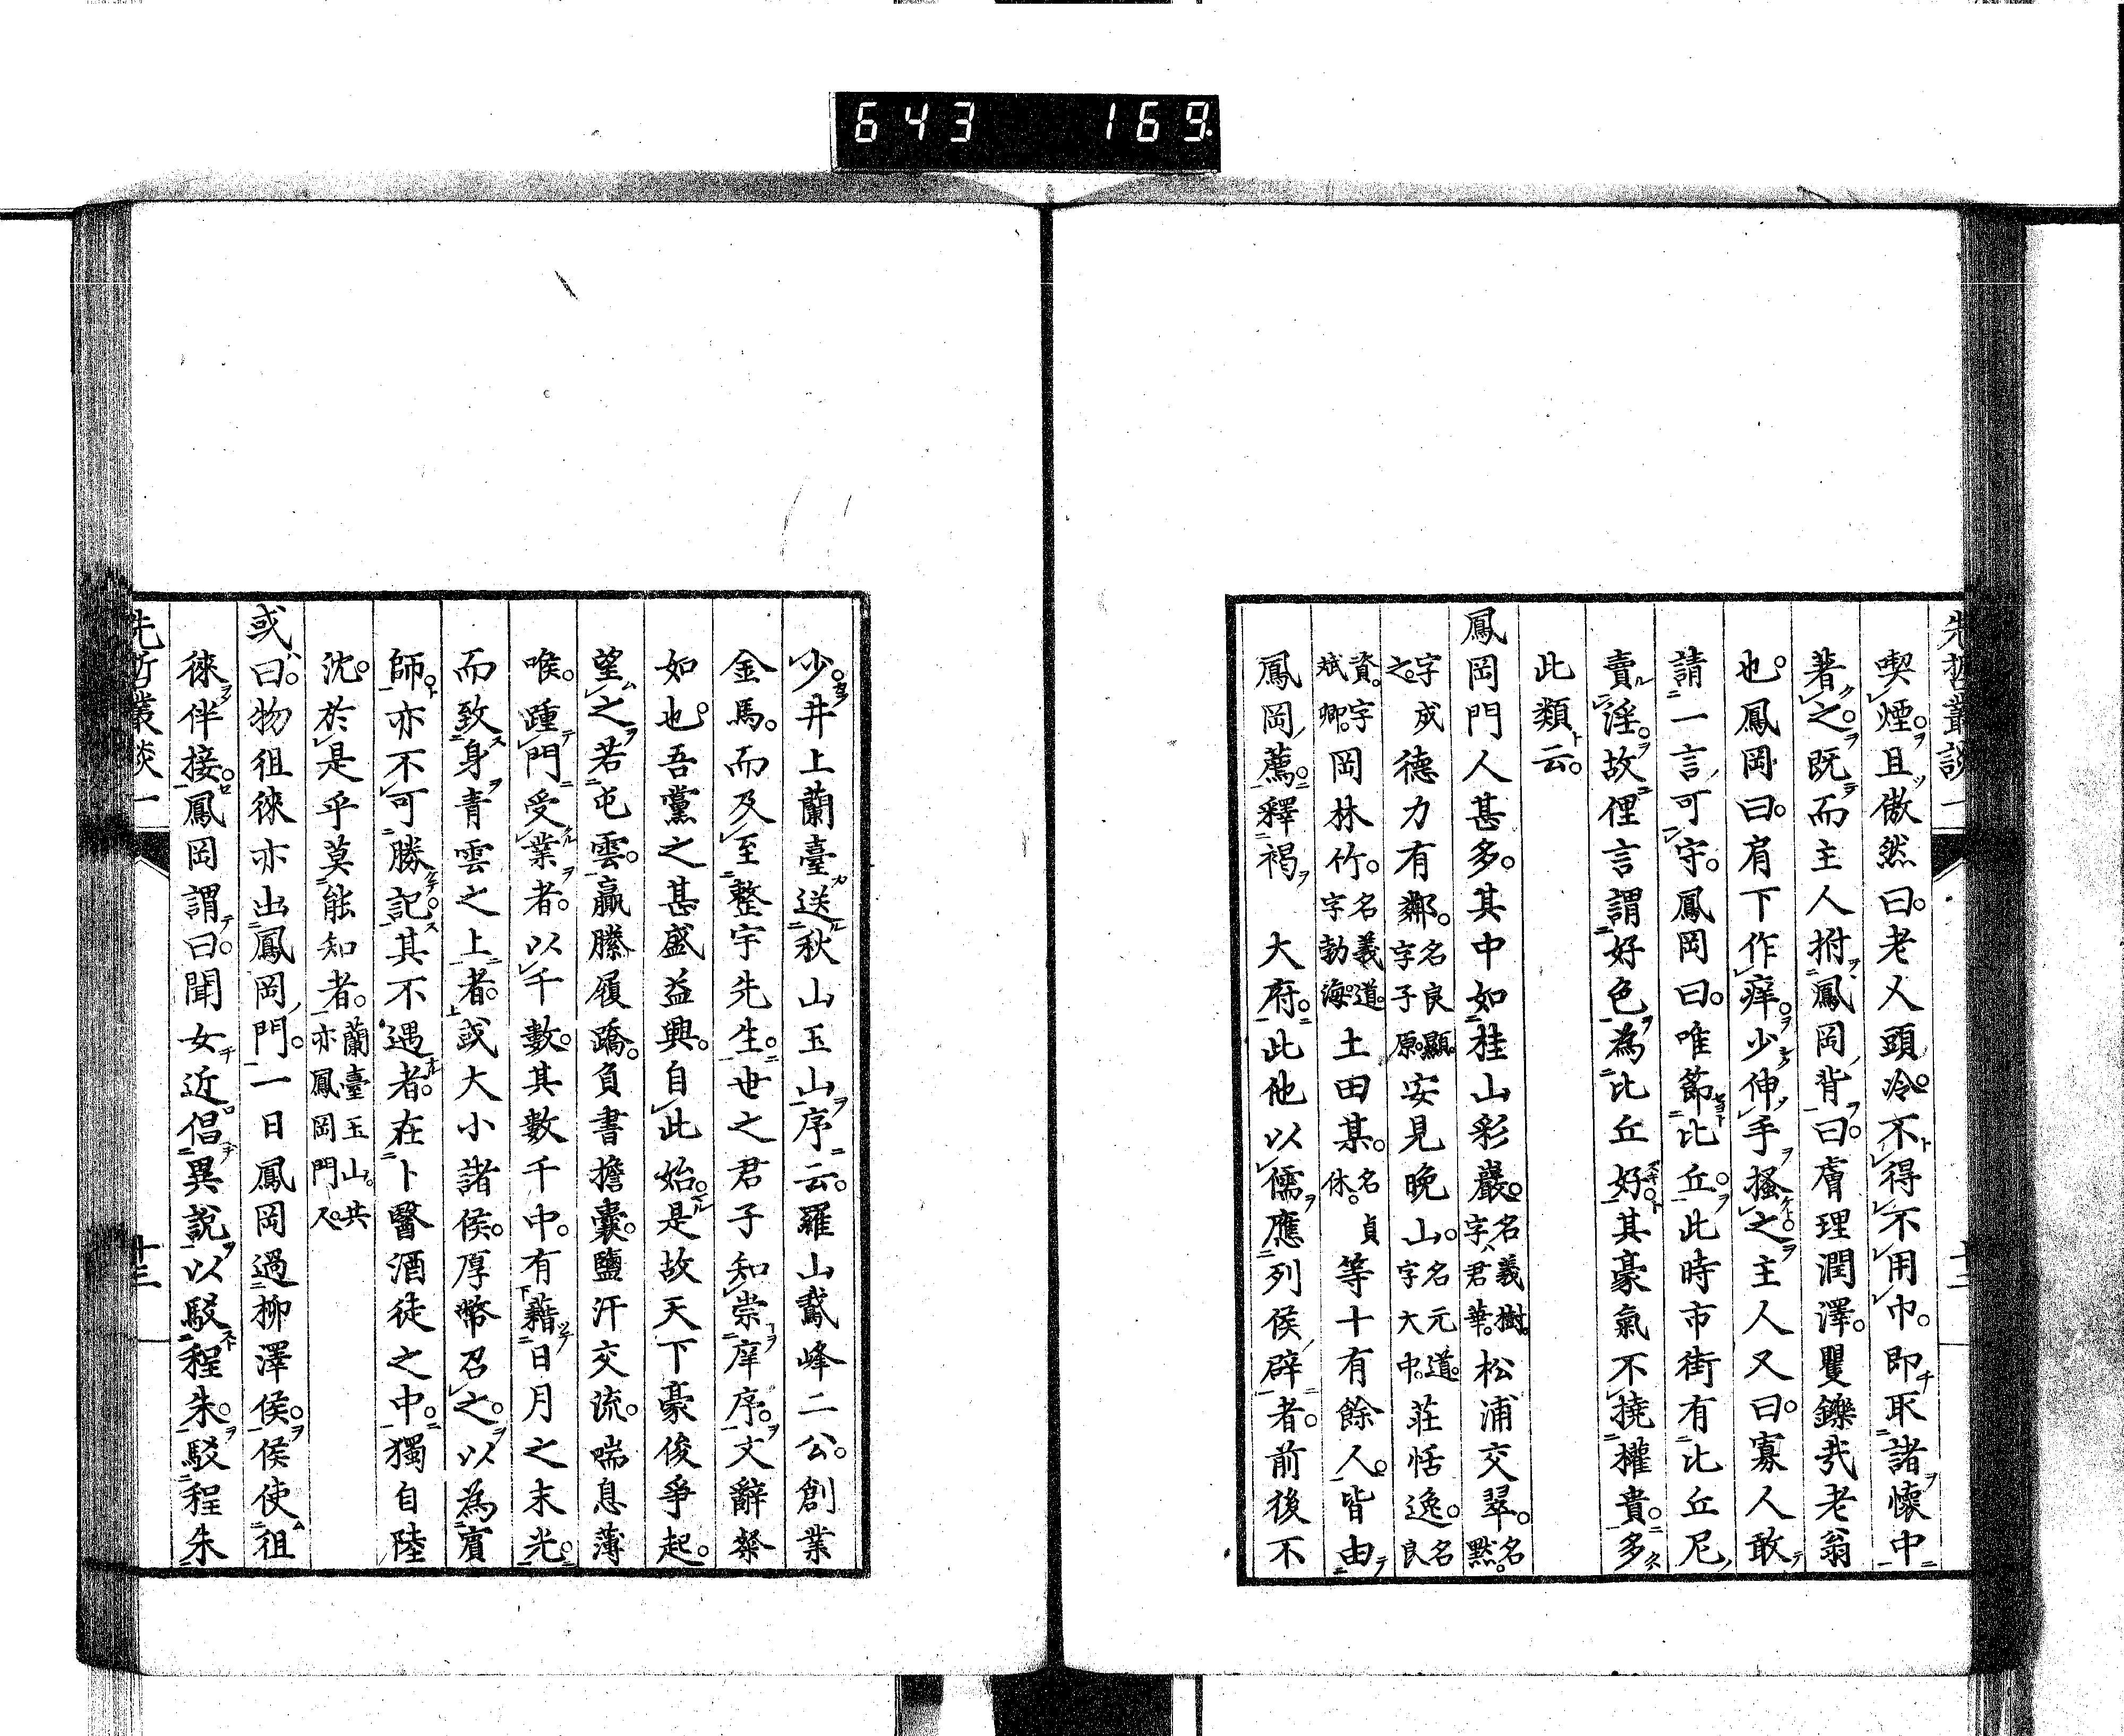 643 169
先哲叢談一
十二
喫煙。且傲然曰。老人頭冷。不得不用巾。即取諸懷中
著之。既而主人拊鳳岡背曰。膚理潤澤。矍鑠哉老翁
也。鳳岡曰。肩下作痒。少伸手搔之。主人又曰。寡人敢
請一言可守。鳳岡曰。唯節比丘。此時市街有比丘尼
賣淫。故俚言謂好色為比丘好。其豪氣不撓權貴。多
此類云。
鳳岡門人甚多。其中如桂山彩巖。名義樹。字君華。松浦交翠。名默。
字成之。德力有鄰。名良顯。字子原。安見晚山。名元道。字大中。莊恬逸。名良
資。字斌卿。岡林竹。名義道。字勃海。土田某。名貞休。等十有餘人。皆由
鳳岡薦。釋褐 大府。此他以儒應列侯辟者。前後不
少。井上蘭臺送秋山玉山序云。羅山鵞峰二公。創業
金馬。而及至整宇先生。世之君子知崇庠序。文辭粲
如也。吾黨之甚盛益興。自此始。是故天下豪俊爭起。
望之若屯雲。贏縢履蹻。負書擔囊。鹽汗交流。喘息薄
喉。踵門受業者。以千數。其數千中。有藉日月之末光。
而致身青雲之上者。或大小諸侯。厚幣召之。以為賓
師。亦不可勝記。其不遇者。在卜醫酒徒之中。獨自陸
沈。於是乎莫能知者。蘭臺玉山。共亦鳳岡門人。
或曰。物徂徠亦出鳳岡門。一日鳳岡過柳澤侯。侯使徂
徠伴接。鳳岡謂曰。聞女近倡異說。以駁程朱。駁程朱
先哲叢談一
十三